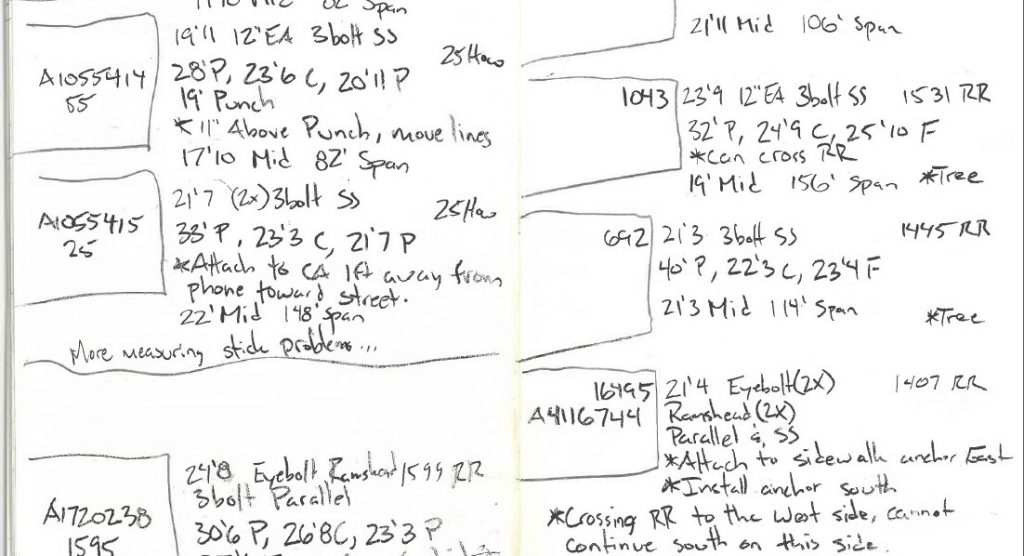 Span
19'11 12"EA 3bolt SS
25 Haw
A1055414
55
28'P, 23'6 C, 20'11 P
19' Punch
*11" Above Punch, move lines
17'10 Mid 82' Span
21'7 (2x) 3bolt SS
25 Haw
A1055415
25
38'P, 23'3 C, 21'7 P
*Attach to CA 1ft away from
phone toward street.
22' Mid 148' Span
More measuring stick problems...
24'8 Eyebolt, Ramshead 1599 RR
3bolt Parallel
A1720238
1595
30'6 P, 26'8 C, 23'3 P
21'11 Mid 106' Span
1043 23'9 12"EA 3bolt SS 1531 RR
32'P, 24'9 C, 25'10 F
*Can cross RR
19' Mid 156' Span *Tree
692 21'3 3bolt SS 1445 RR
40'P, 22'3 C, 23'4 F
21'3 Mid 114' Span *Tree
16495 21'4 Eyebolt (2x) 1407 RR
A4116744 Ramshead (2x)
Parallel &, SS
*Attach to sidewalk anchor East
*Install anchor south
*Crossing RR to the west side, cannot
continue south on this side.